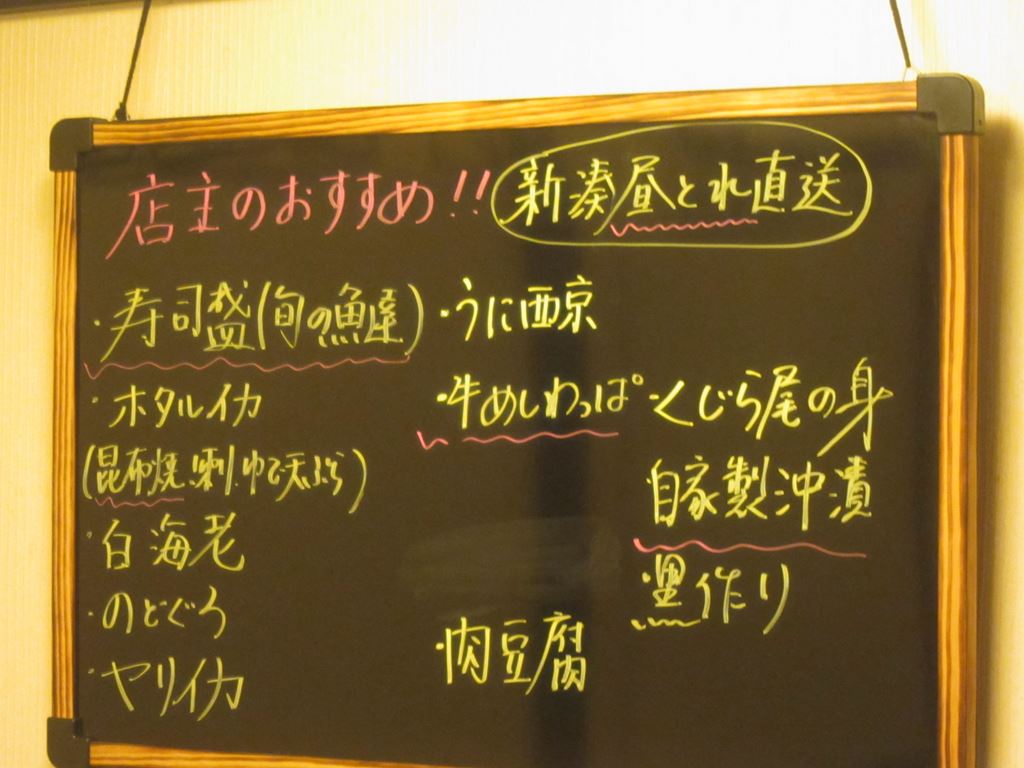 店主のおすすめ!!
新湊昼とれ直送
・寿司盛(旬の魚屋)
・ホタルイカ
(昆布焼.刺.ゆで.天ぷら)
・白海老
・のどぐろ
・ヤリイカ
・うに西京
・牛めしわっぱ
・肉豆腐
・くじら尾の身
自家製沖漬
黒作り